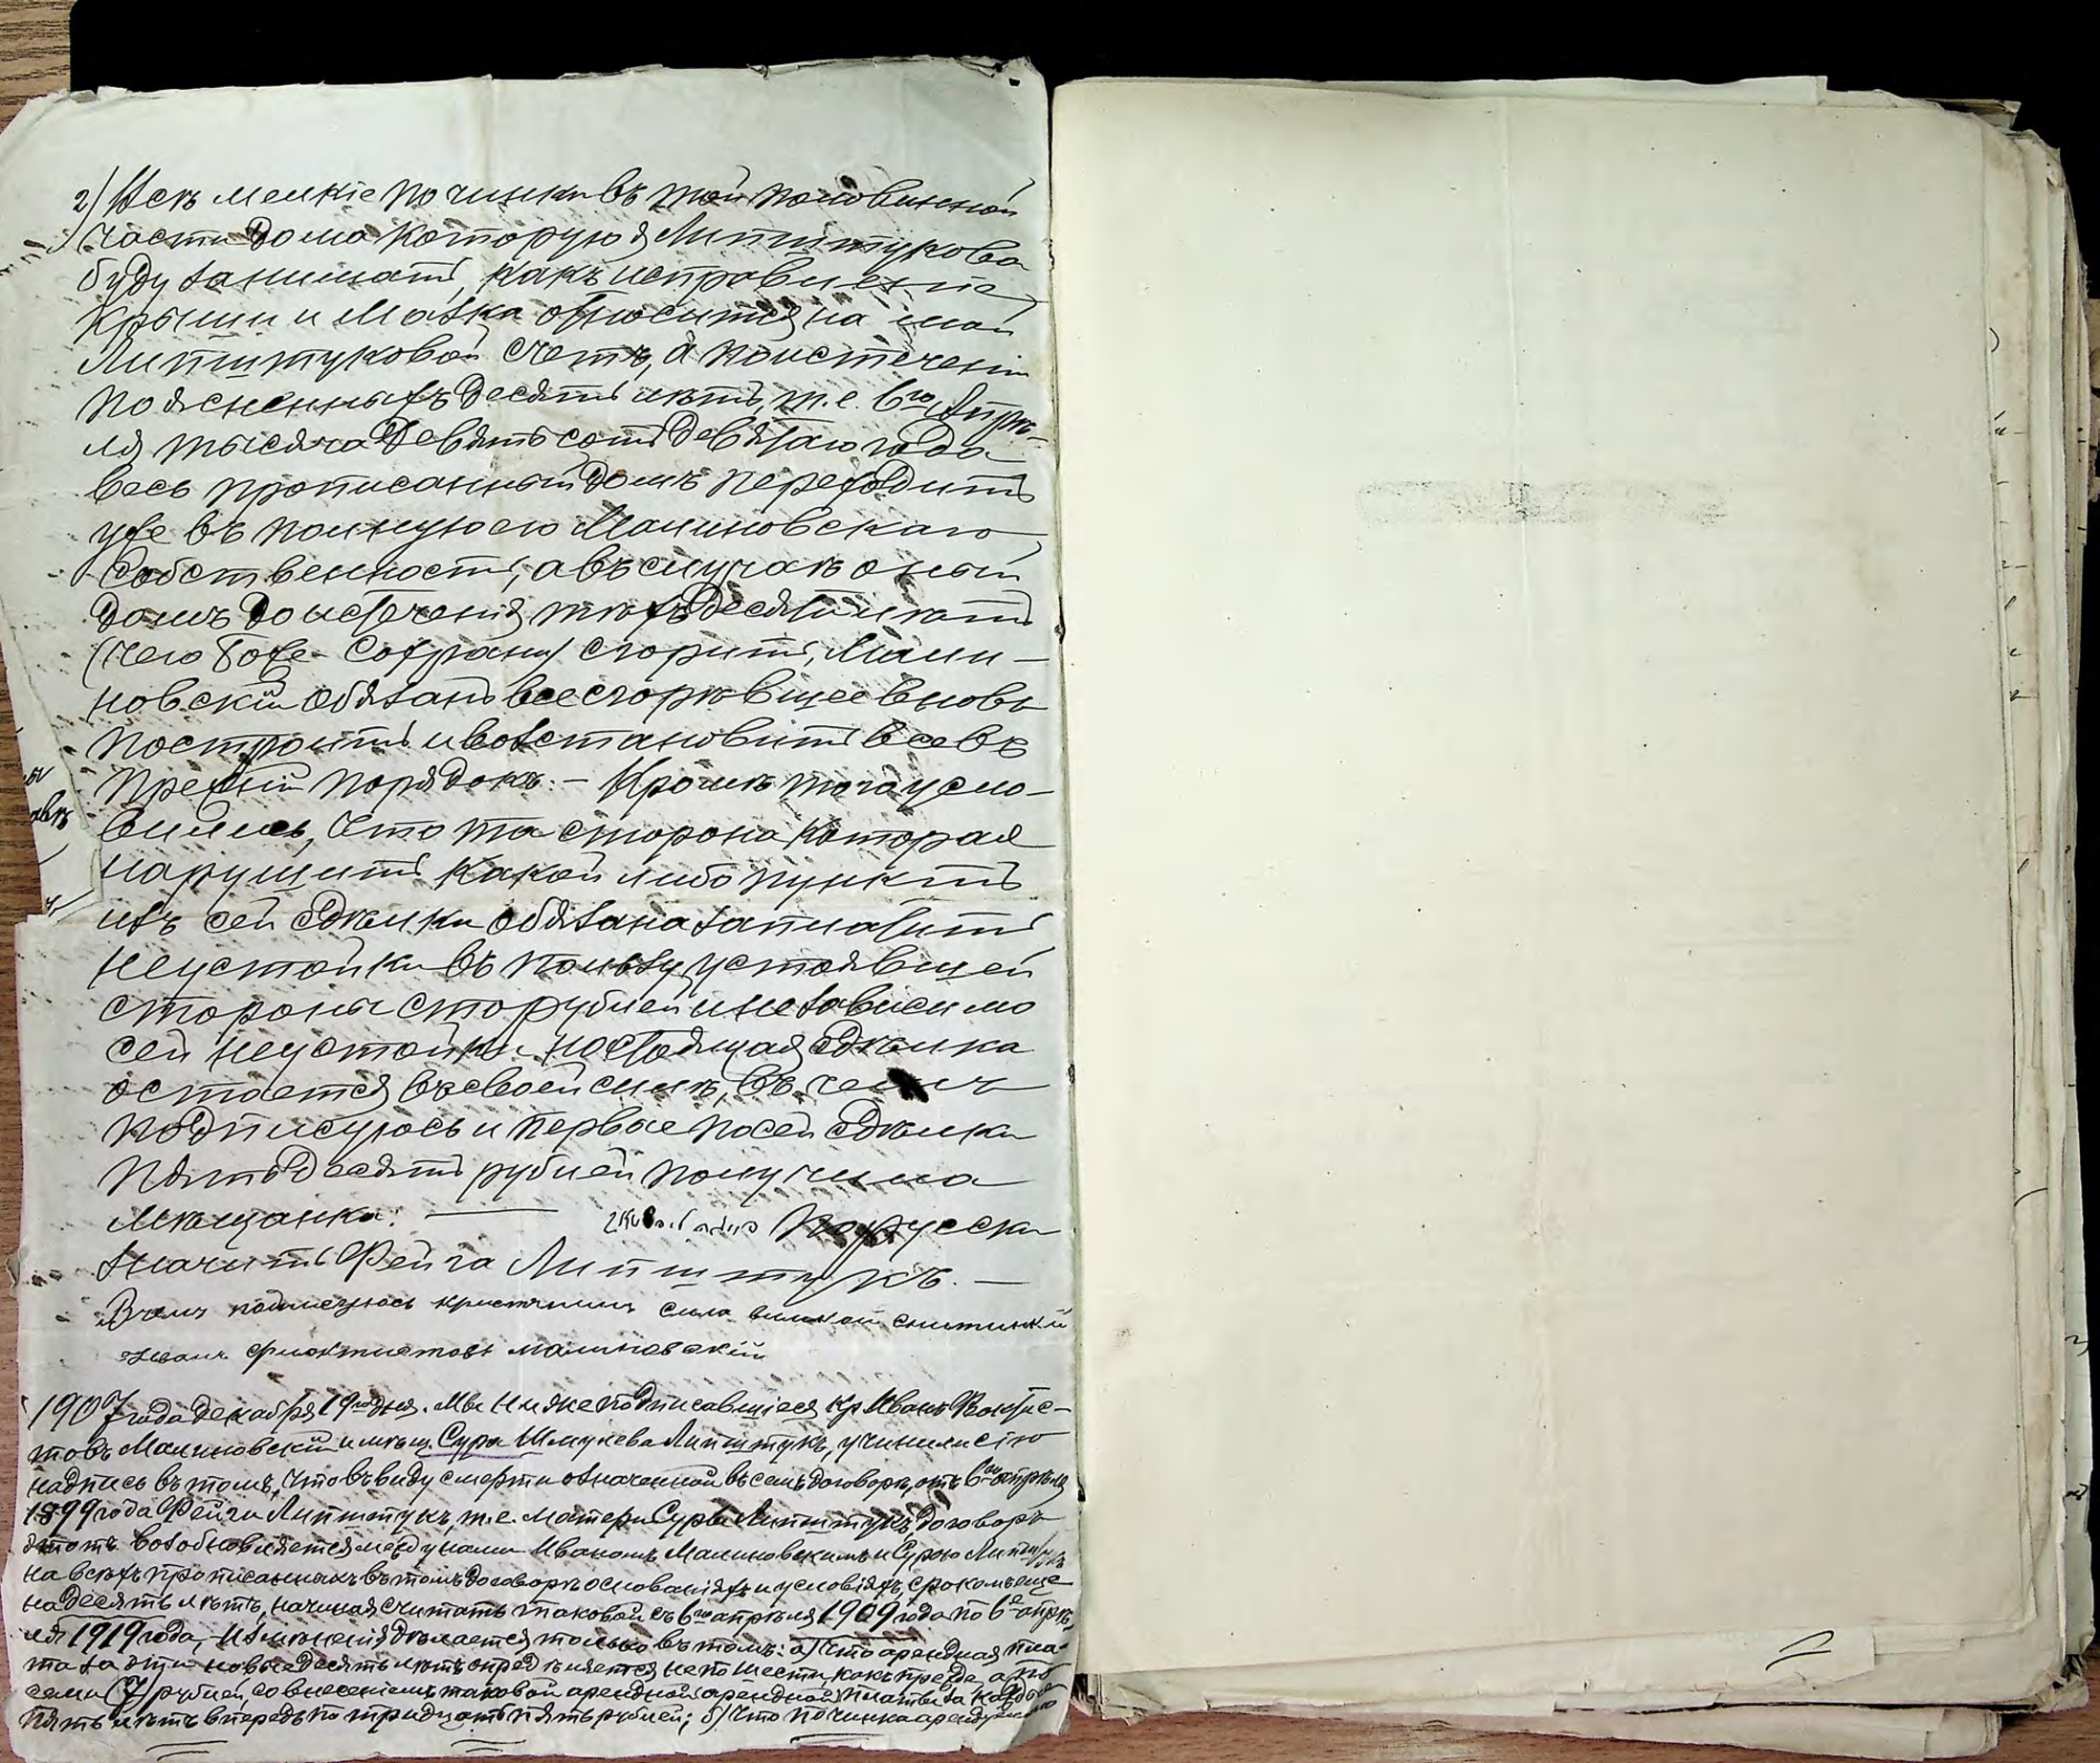 2) Всѣ мелкіе починки въ той половинной
части дома которую я Липштукова
буду занимать, какъ исправленіе
крыши и мазка относится на мой
Липштуковой счетъ, а по истеченіи
поясненныхъ десять лѣтъ, т.е. 6го Апрѣ-
ля тысяча девятьсотъ девятаго года
весь прописанный домъ переходитъ
уже въ полную его Малиновскаго
собственность, а въ случаѣ оный
домъ до истеченія тѣхъ десяти лѣтъ
(чего Боже сохрани) сгоритъ, Мали-
новскій обязанъ все сгорѣвшее вновь
построить и возстановить все въ
прежній порядокъ. – Кромѣ того усло-
вились, что та сторона которая
нарушитъ какой либо пунктъ
изъ сей сдѣлки обязана заплатить
неустойки въ пользу устоявшей
стороны сто рублей и независимо
сей неустойки настоящая сдѣлка
остается въ своей силѣ, въ чемъ
подписуюсь и первые по сей сдѣлки
пятьдесять рублей получила
мѣщанка: — По русски
значитъ Фейга Липштукъ. —
В чемъ подписуюсь кристянинъ села великой снитинки
иванъ фиоктистовъ малиновскій
1907 года декабря 19го дня. Мы нижеподписавшіеся кр. Иванъ Фоктис-
товъ Малиновскій и мѣщ. Сура Шмулева Липштукъ, учинили сію
надпись въ томъ, что въ виду смерти означенной въ семъ договорѣ, отъ 6го апрѣля
1899 года Фейги Липштукъ, т.е. матери Суры Липштукъ, договоръ
этотъ возобновляется между нами Иваномъ Малиновскимъ и Сурою Липштукъ
на всѣхъ прописанныхъ въ томъ договорѣ основаніяхъ и условіяхъ, срокомъ еще
на десять лѣтъ, начиная считать таковой съ 6го апрѣля 1909 года по 6е апрѣ-
ля 1919 года, – измѣненія дѣлается только въ томъ: а) что арендная пла-
та за эти новые десять лѣтъ опредѣляется не по шести, какъ прежде, а по
семи (7) рублей, со внесеніемъ таковой арендной арендной платы за каждые
пять лѣтъ впередъ по тридцать пять рублей; б) что починка арендуемаго